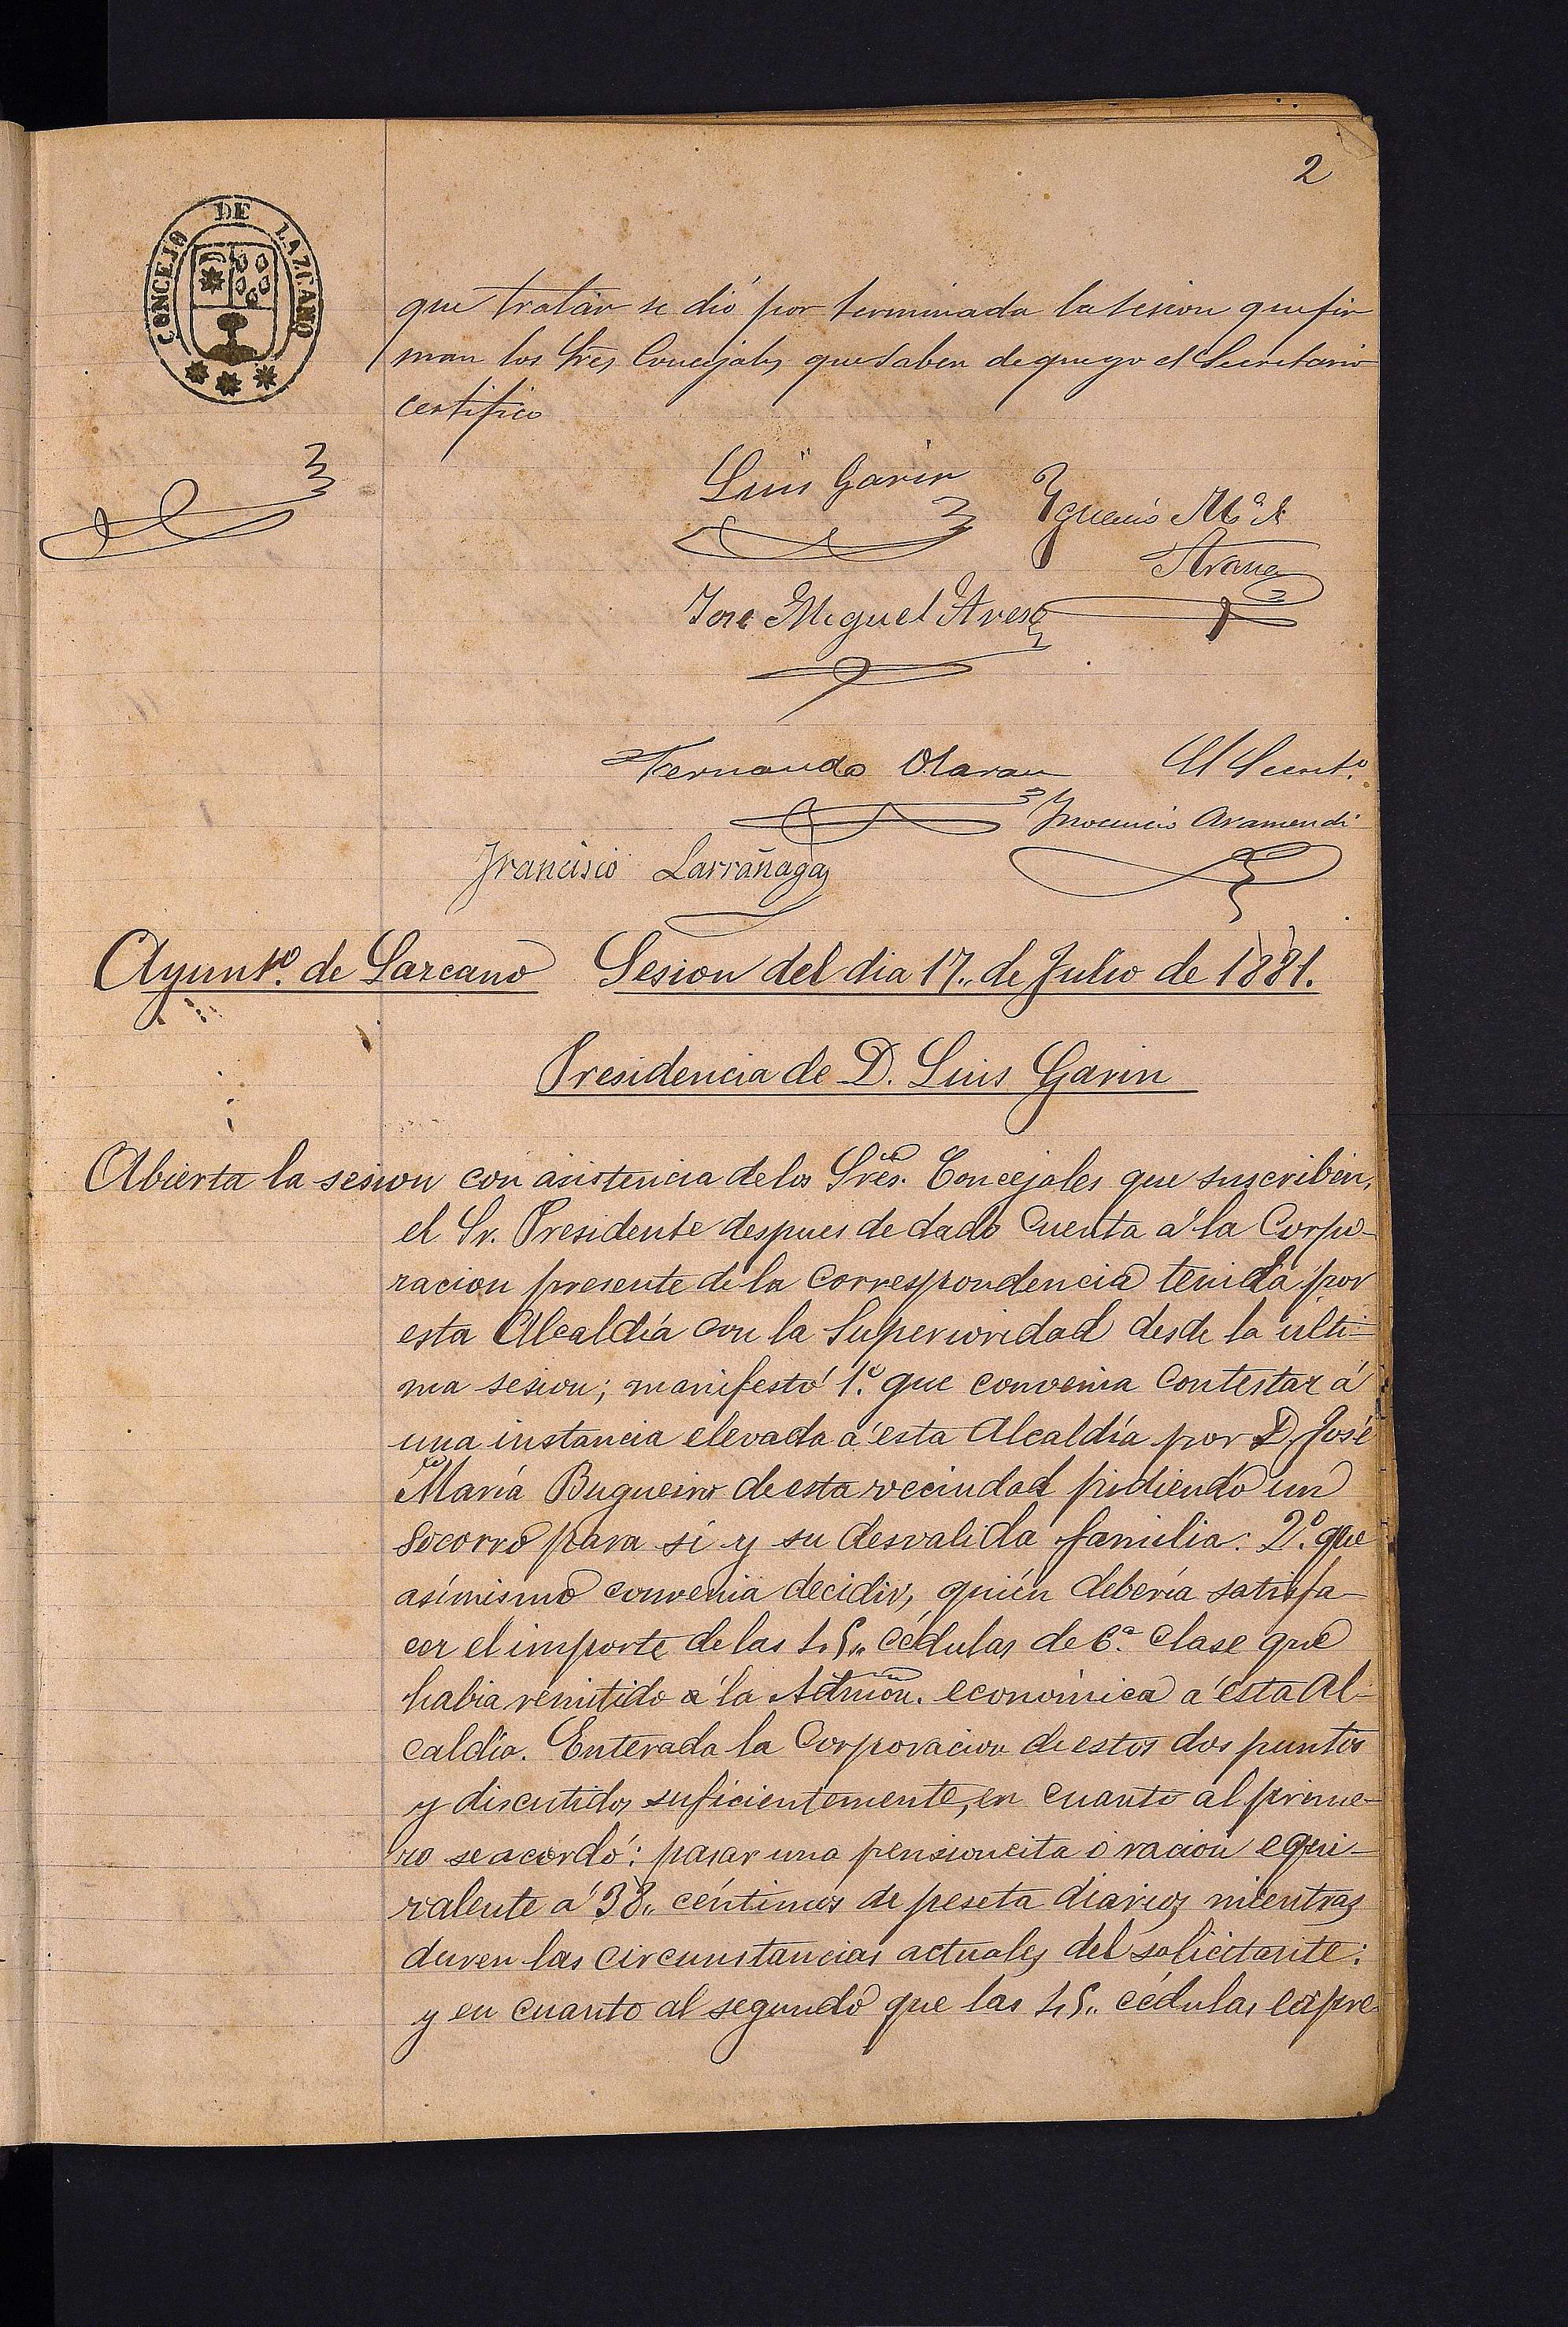 2
CONCEJO DE LAZCANO
que tratar se dió por terminada la sesion que fir
man los Sres Concejales que saben de que yo el Secretario
certifico
Luis Garin
Ygnacio Mª de
Arana
Jose Miguel
Fernando Olaran
El Secretº
Ynocencio Aramendi
Francisco Larrañaga
Ayuntº. de Lazcano Sesion del dia 17,, de Julio de 1881.
Presidencia de D. Luis Garin
Abierta la sesion con asistencia de los Sres. Concejales que suscriben,
el Sr. Presidente despues de dado cuenta á la Corpo-
racion presente de la correspondencia tenida por
esta Alcaldía con la Superioridad desde la ulti-
ma sesion; manifestó 1.º que convenia contestar á
una instancia elevada á esta Alcaldía por D. José
María de esta vecindad pidiendo un
socorro para sí y su desvalida familia: 2.º que
asímismo convenia decidir, quién debería satisfa-
cer el importe de las 45,, cédulas de 6.ª clase que
habia remitido á la Admon. económica á esta Al-
caldía. Enterada la Corporacion de estos dos puntos
y discutidos suficientemente, en cuanto al prime-
ro se acordó: pasar una pensioncita ó racion equi-
valente á 38,, céntimos de peseta diarios mientras
duren las circunstancias actuales del solicitante:
y en cuanto al segundo que las 45,, cédulas expre